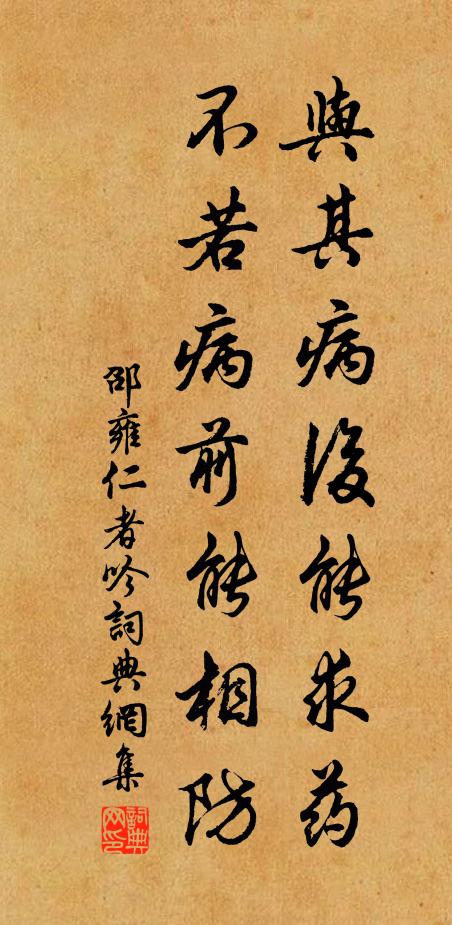 與其病後能求药
不若病前能相防
邵雍仁者吟詞典網集
詞典网印